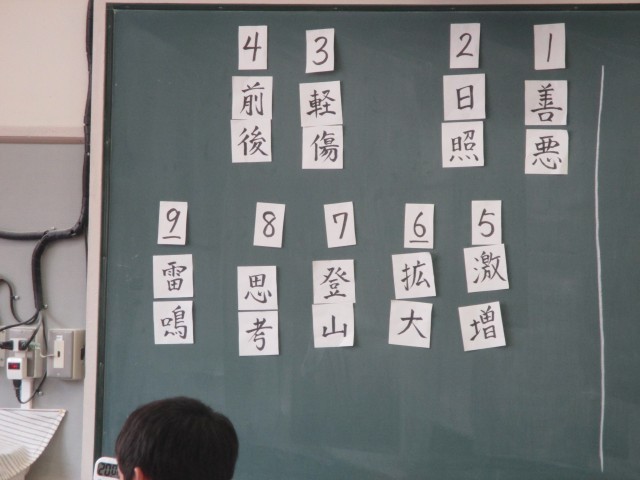 1
善悪
2
日照
3
軽傷
4
前後
5
激増
6
拡大
7
登山
8
思考
9
雷鳴